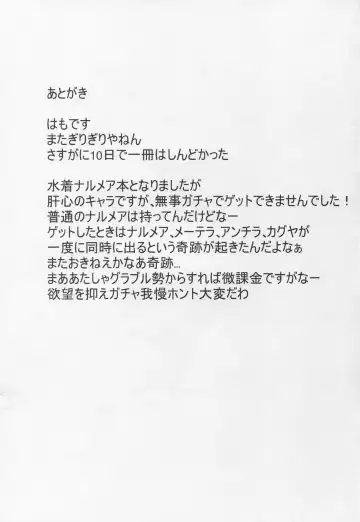 あとがき
はもです
またぎりぎりやねん
さすがに10日で一冊はしんどかった
水着ナルメア本となりましたが
肝心のキャラですが、無事ガチャでゲットできませんでした！
普通のナルメアは持ってんだけどなー
ゲットしたときはナルメア、メーテラ、アンチラ、カグヤが
一度に同時に出るという奇跡が起きたんだよなぁ
またおきねえかなあ奇跡…
まああたしゃグラブル勢からすれば微課金ですがなー
欲望を抑えガチャ我慢ホント大変だわ